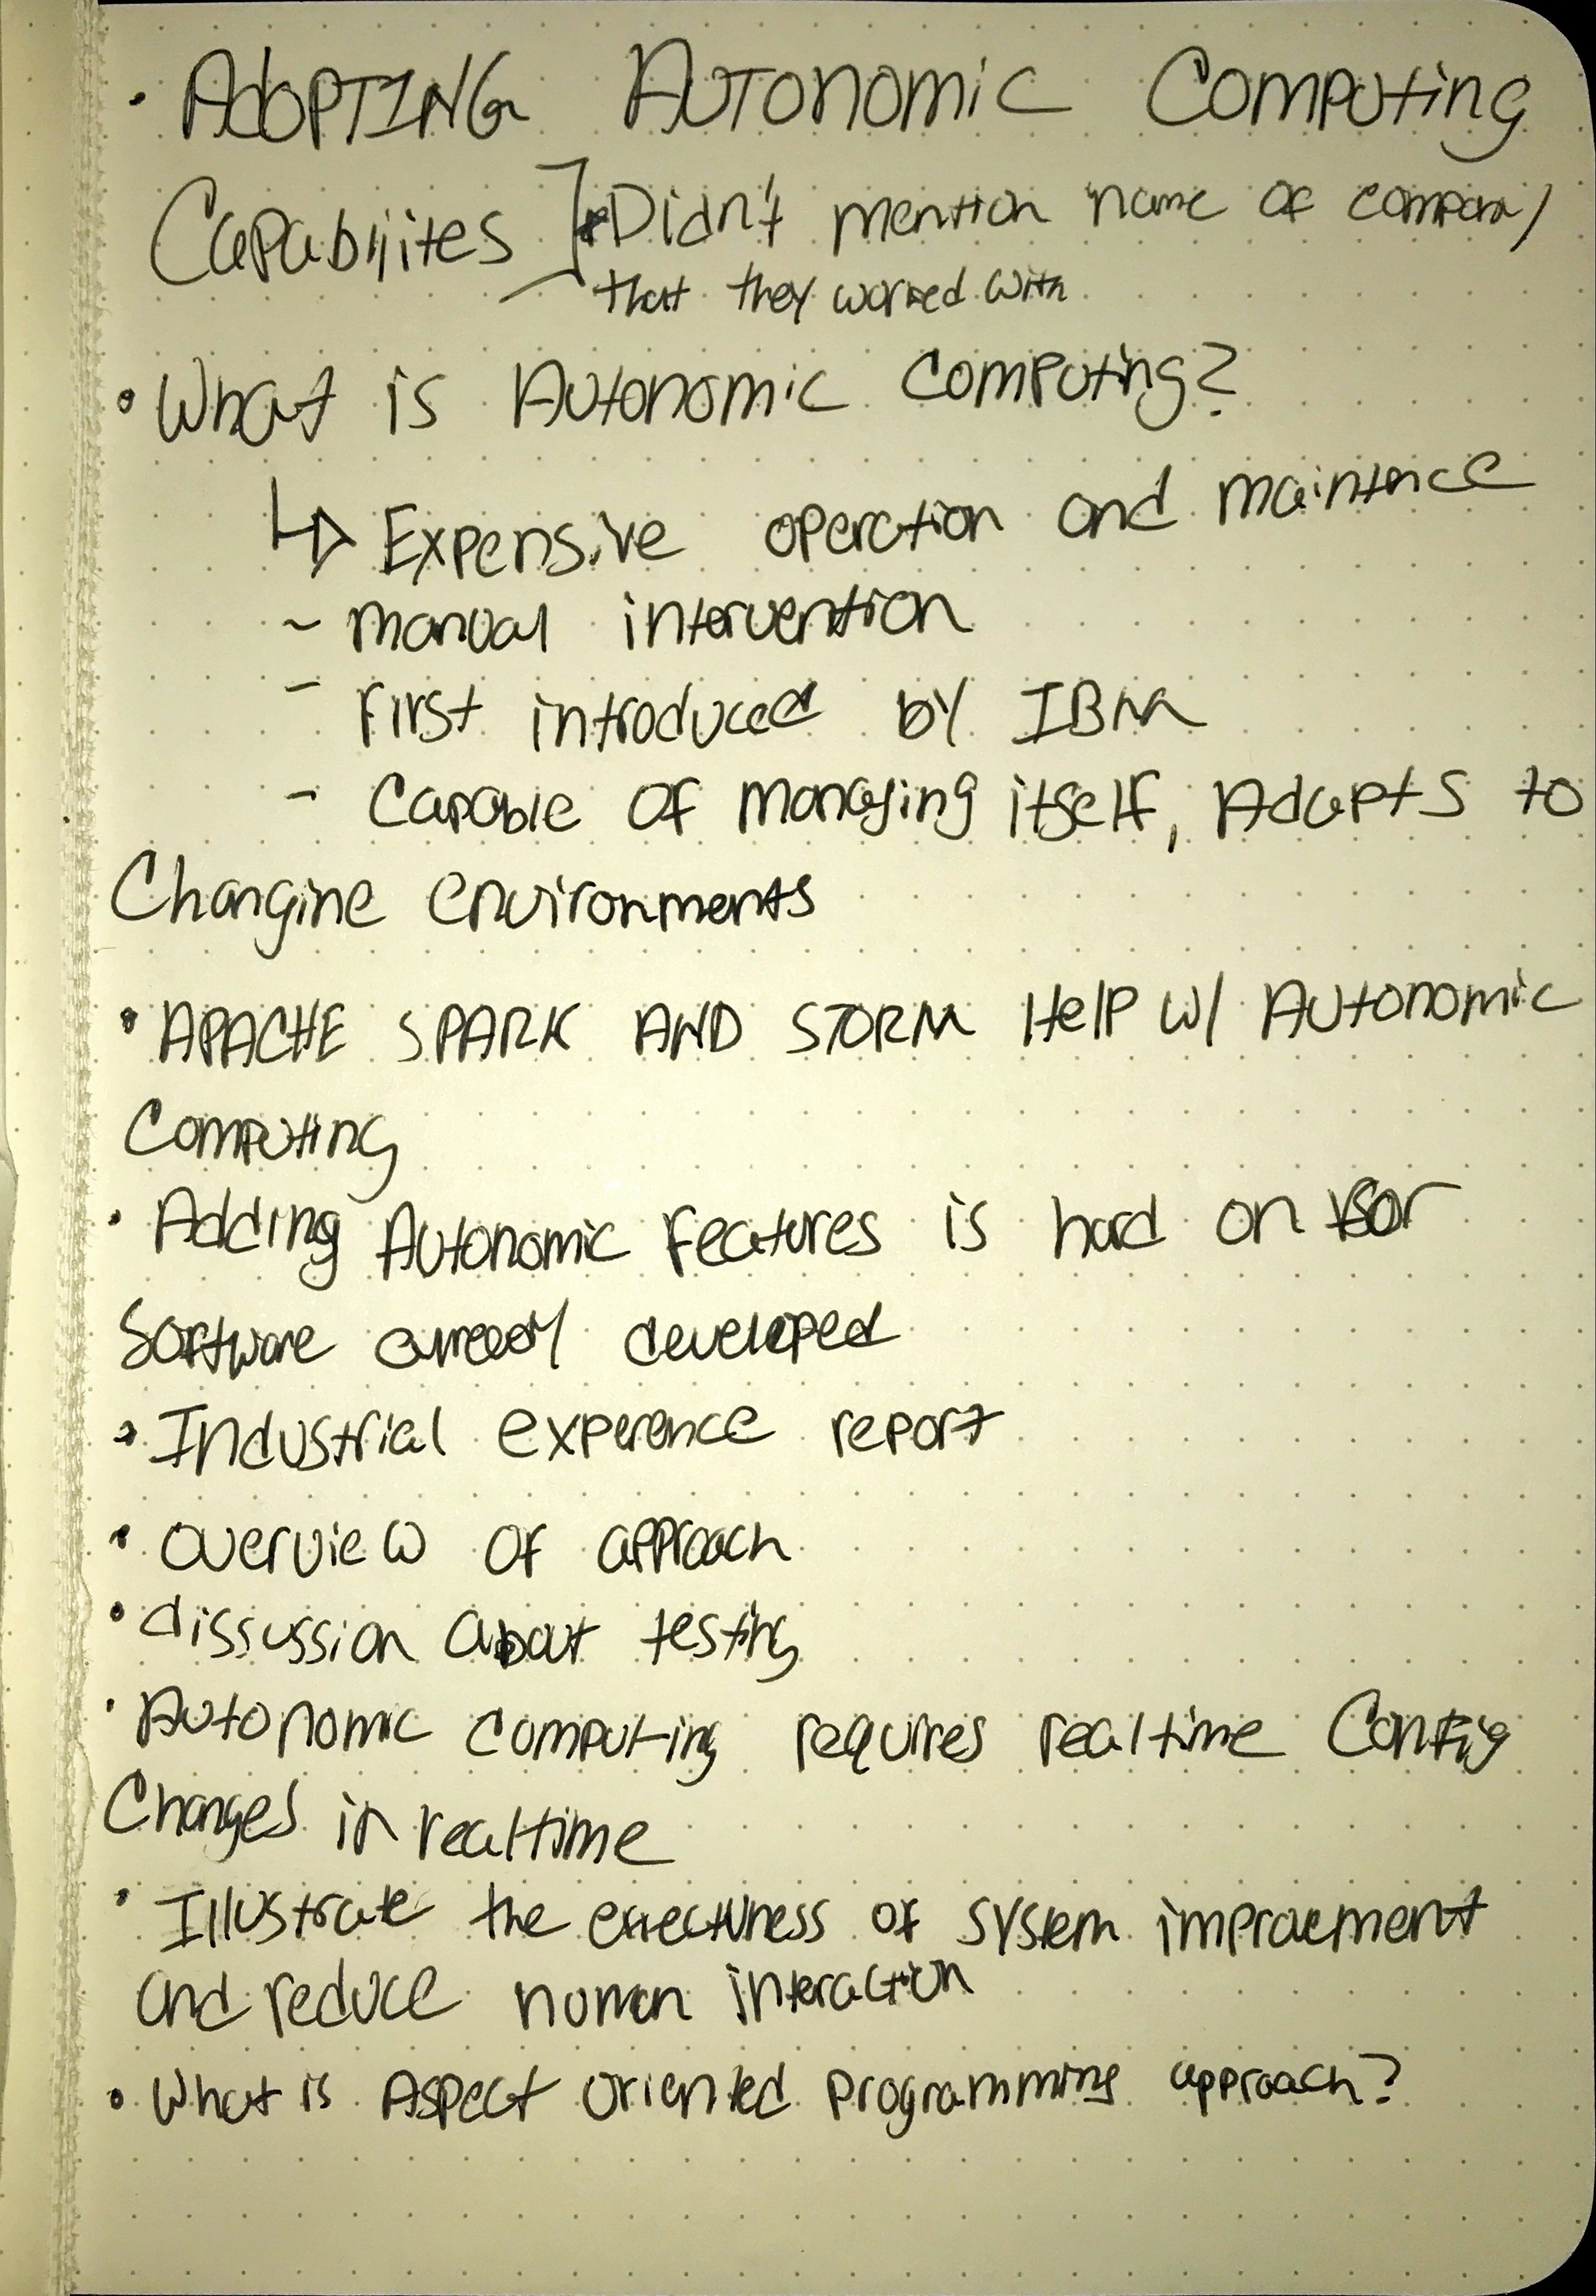 • ADOPTING AUTONOMIC Computing
Capabiiites ] • Didn't mention name of company
that they worked with
• What is Autonomic Computing?
↳ Expensive operation and maintence
~ manual intervention
- First introduced by IBM
- Capable of managing itself, Adapts to
Changine environments
• APACHE SPARK AND STORM Help w/ Autonomic
Computing
• Adding Autonomic Features is hard on for
Software already developed
• Industrial experence report
• Overview of approach
• dissussion about testing
• Autonomic computing requires realtime Config
Changes in realtime
• Illustrate the effectivness of system improement
and reduce human interaction
• What is Aspect oriented programming approach?